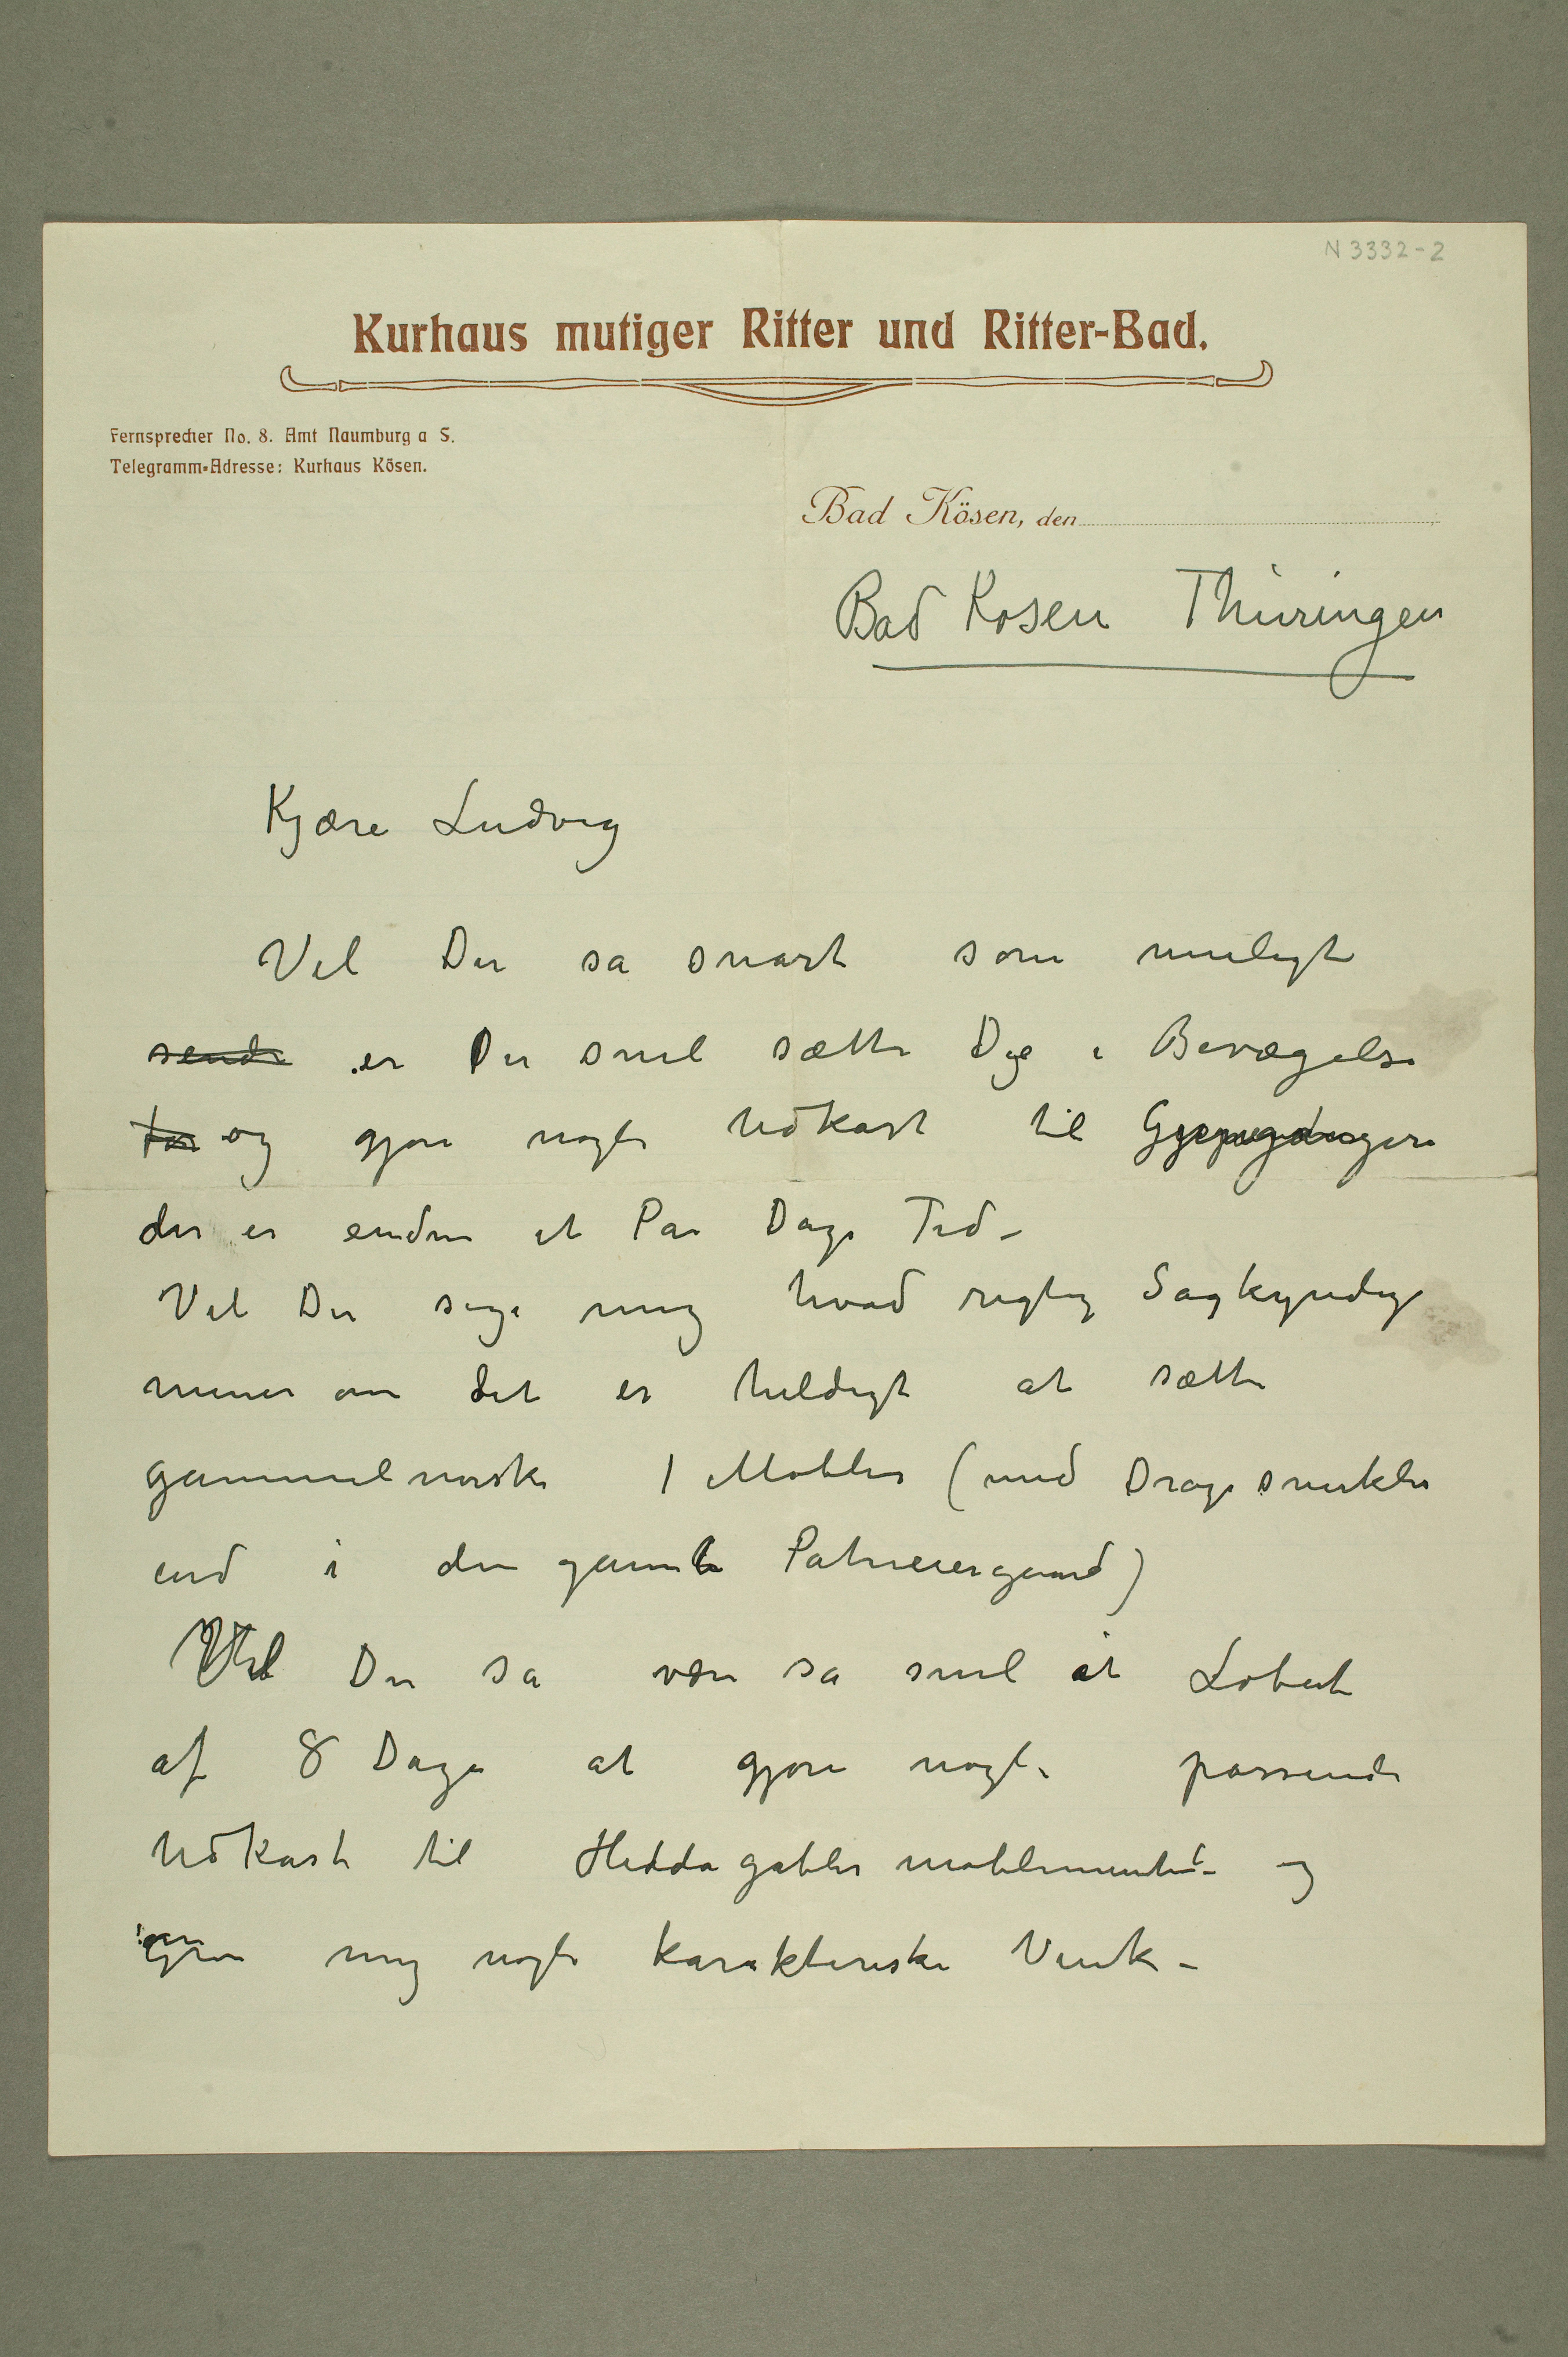 N 3332-2
Kurhaus mutiger Ritter und Ritter-Bad.
Fernsprecher No. 8. Amt Naumburg a S.
Telegramm-Adresse: Kurhaus Kösen.
Bad Kösen, den
Bad Kosen Thüringen
Kjære Ludvig
Vil Du så snart som muligt
sende er Du snil sætte Dig i Bevægelse
for og gjøre nogle Udkast til Gjengangere
der er endnu et Par Dags Tid –
Vil Du sige mig hvad rigtig Sagkyndige
mener om det er heldigt at sætte
gammelnorske Møbler (med Dragesnirkler
ind i den gamle Patriciergaard)
Vil Du så være så snil at Løbet
af 8 Dage at gjøre nogle passende
Udkast til Hedda gabler møblementet – og
give mig nogle karakteriske Vink –